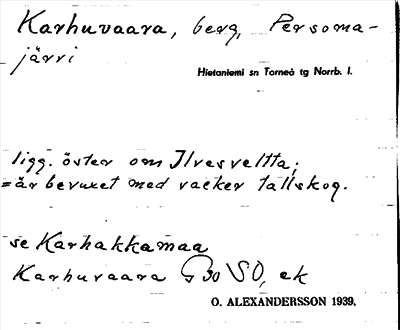 Karhuvaara, berg, Persoma-
järvi
Hietaniemi sn Torneå tg Norrb. l.
ligg. öster om Ilvesveltta;
=är bevuxet med vacker tallskog.
se Karhakkamaa
Karhuvaara G 30 SO, ek
O. ALEXANDERSSON 1939.